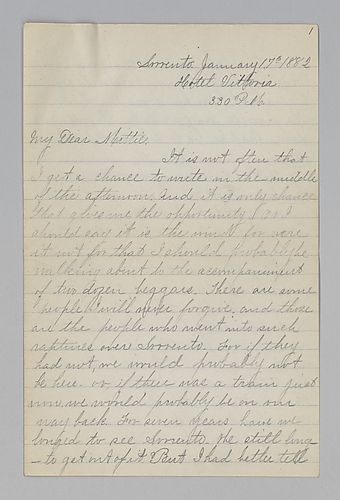 1
Sorrento January 17th 1882
Hotel Vittoria
3.30 P.M.
My Dear Mettie.
It is not often that
I get a chance to write in the middle
of the afternoon. And it is only chance
that gives me the opportunity (or I
should say it is the wind) for were
it not for that I should probably be
walking about to the accompaniment
of two dozen beggars. There are some
people I will never forgive. and those
are the people who went into such
raptures over Sorrento. For if they
had not, we would probably not
be here. or if there was a train just
now we would probably be on our
way back. For seven years have we
longed to see Sorrento. We still long
to get out of it. But I had better tell